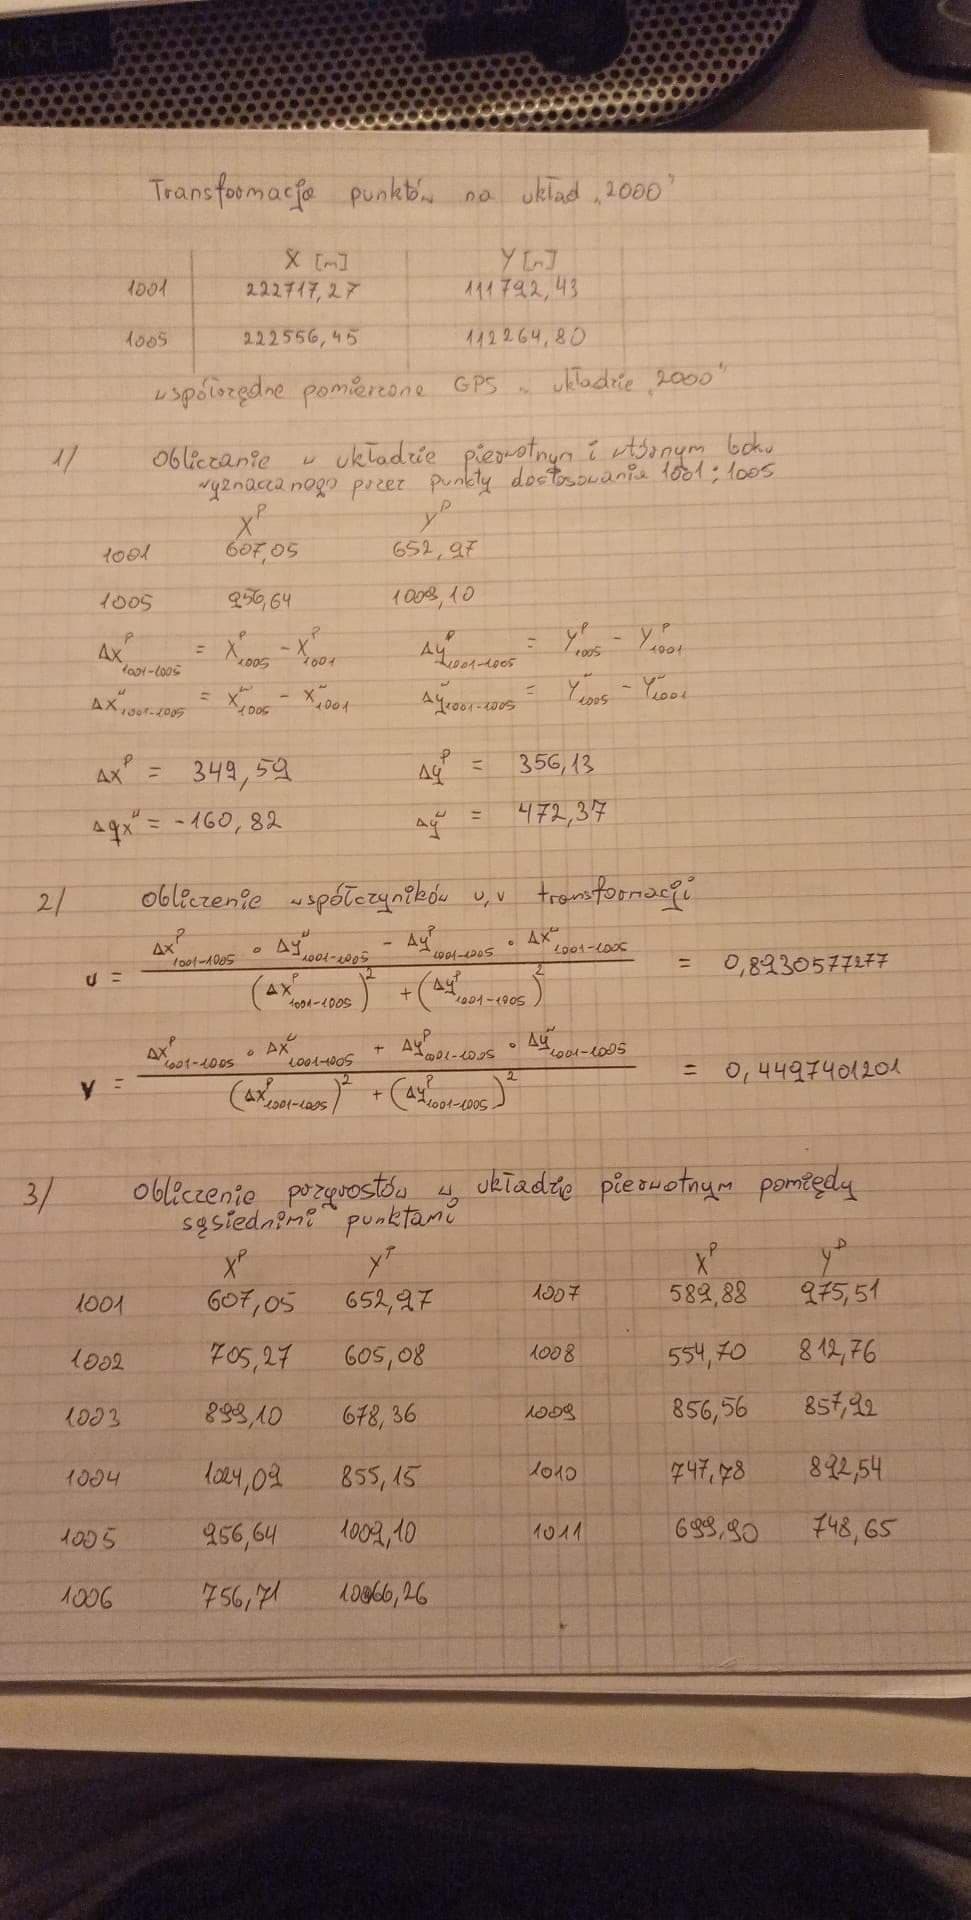 KKER
Transformacja punktów na układ „2000”
X [m] Y [m]
1001 222717,27 111792,43
1005 222556,45 112264,80
współrzędne pomierzone GPS w układzie „2000”
1/ Obliczanie w układzie pierwotnym i wtórnym boku
wyznaczanego przez punkty dostosowania 1001 i 1005
X^P Y^P
1001 607,05 652,97
1005 956,64 1009,10
Δx^P_1001-1005 = X^P_1005 - X^P_1001 Δy^P_1001-1005 = Y^P_1005 - Y^P_1001
Δx^w_1001-1005 = X^w_1005 - X^w_1001 Δy^w_1001-1005 = Y^w_1005 - Y^w_1001
Δx^P = 349,59 Δy^P = 356,13
Δyx^w = -160,82 Δy^w = 472,37
2/ Obliczenie współczyników u, v transformacji
u = (Δx^P_1001-1005 · Δy^w_1001-1005 - Δy^P_1001-1005 · Δx^w_1001-1005) / ((Δx^P_1001-1005)^2 + (Δy^P_1001-1005)^2) = 0,8930577277
v = (Δx^P_1001-1005 · Δx^w_1001-1005 + Δy^P_1001-1005 · Δy^w_1001-1005) / ((Δx^P_1001-1005)^2 + (Δy^P_1001-1005)^2) = 0,4497401201
3/ Obliczenie przyrostów w układzie pierwotnym pomiędzy
sąsiednimi punktami
X^P Y^P X^P Y^P
1001 607,05 652,97 1007 589,88 975,51
1002 705,27 605,08 1008 554,70 812,76
1003 899,10 678,36 1009 856,56 857,92
1004 1024,09 855,15 1010 747,78 892,54
1005 956,64 1009,10 1011 699,90 748,65
1006 756,71 1066,26